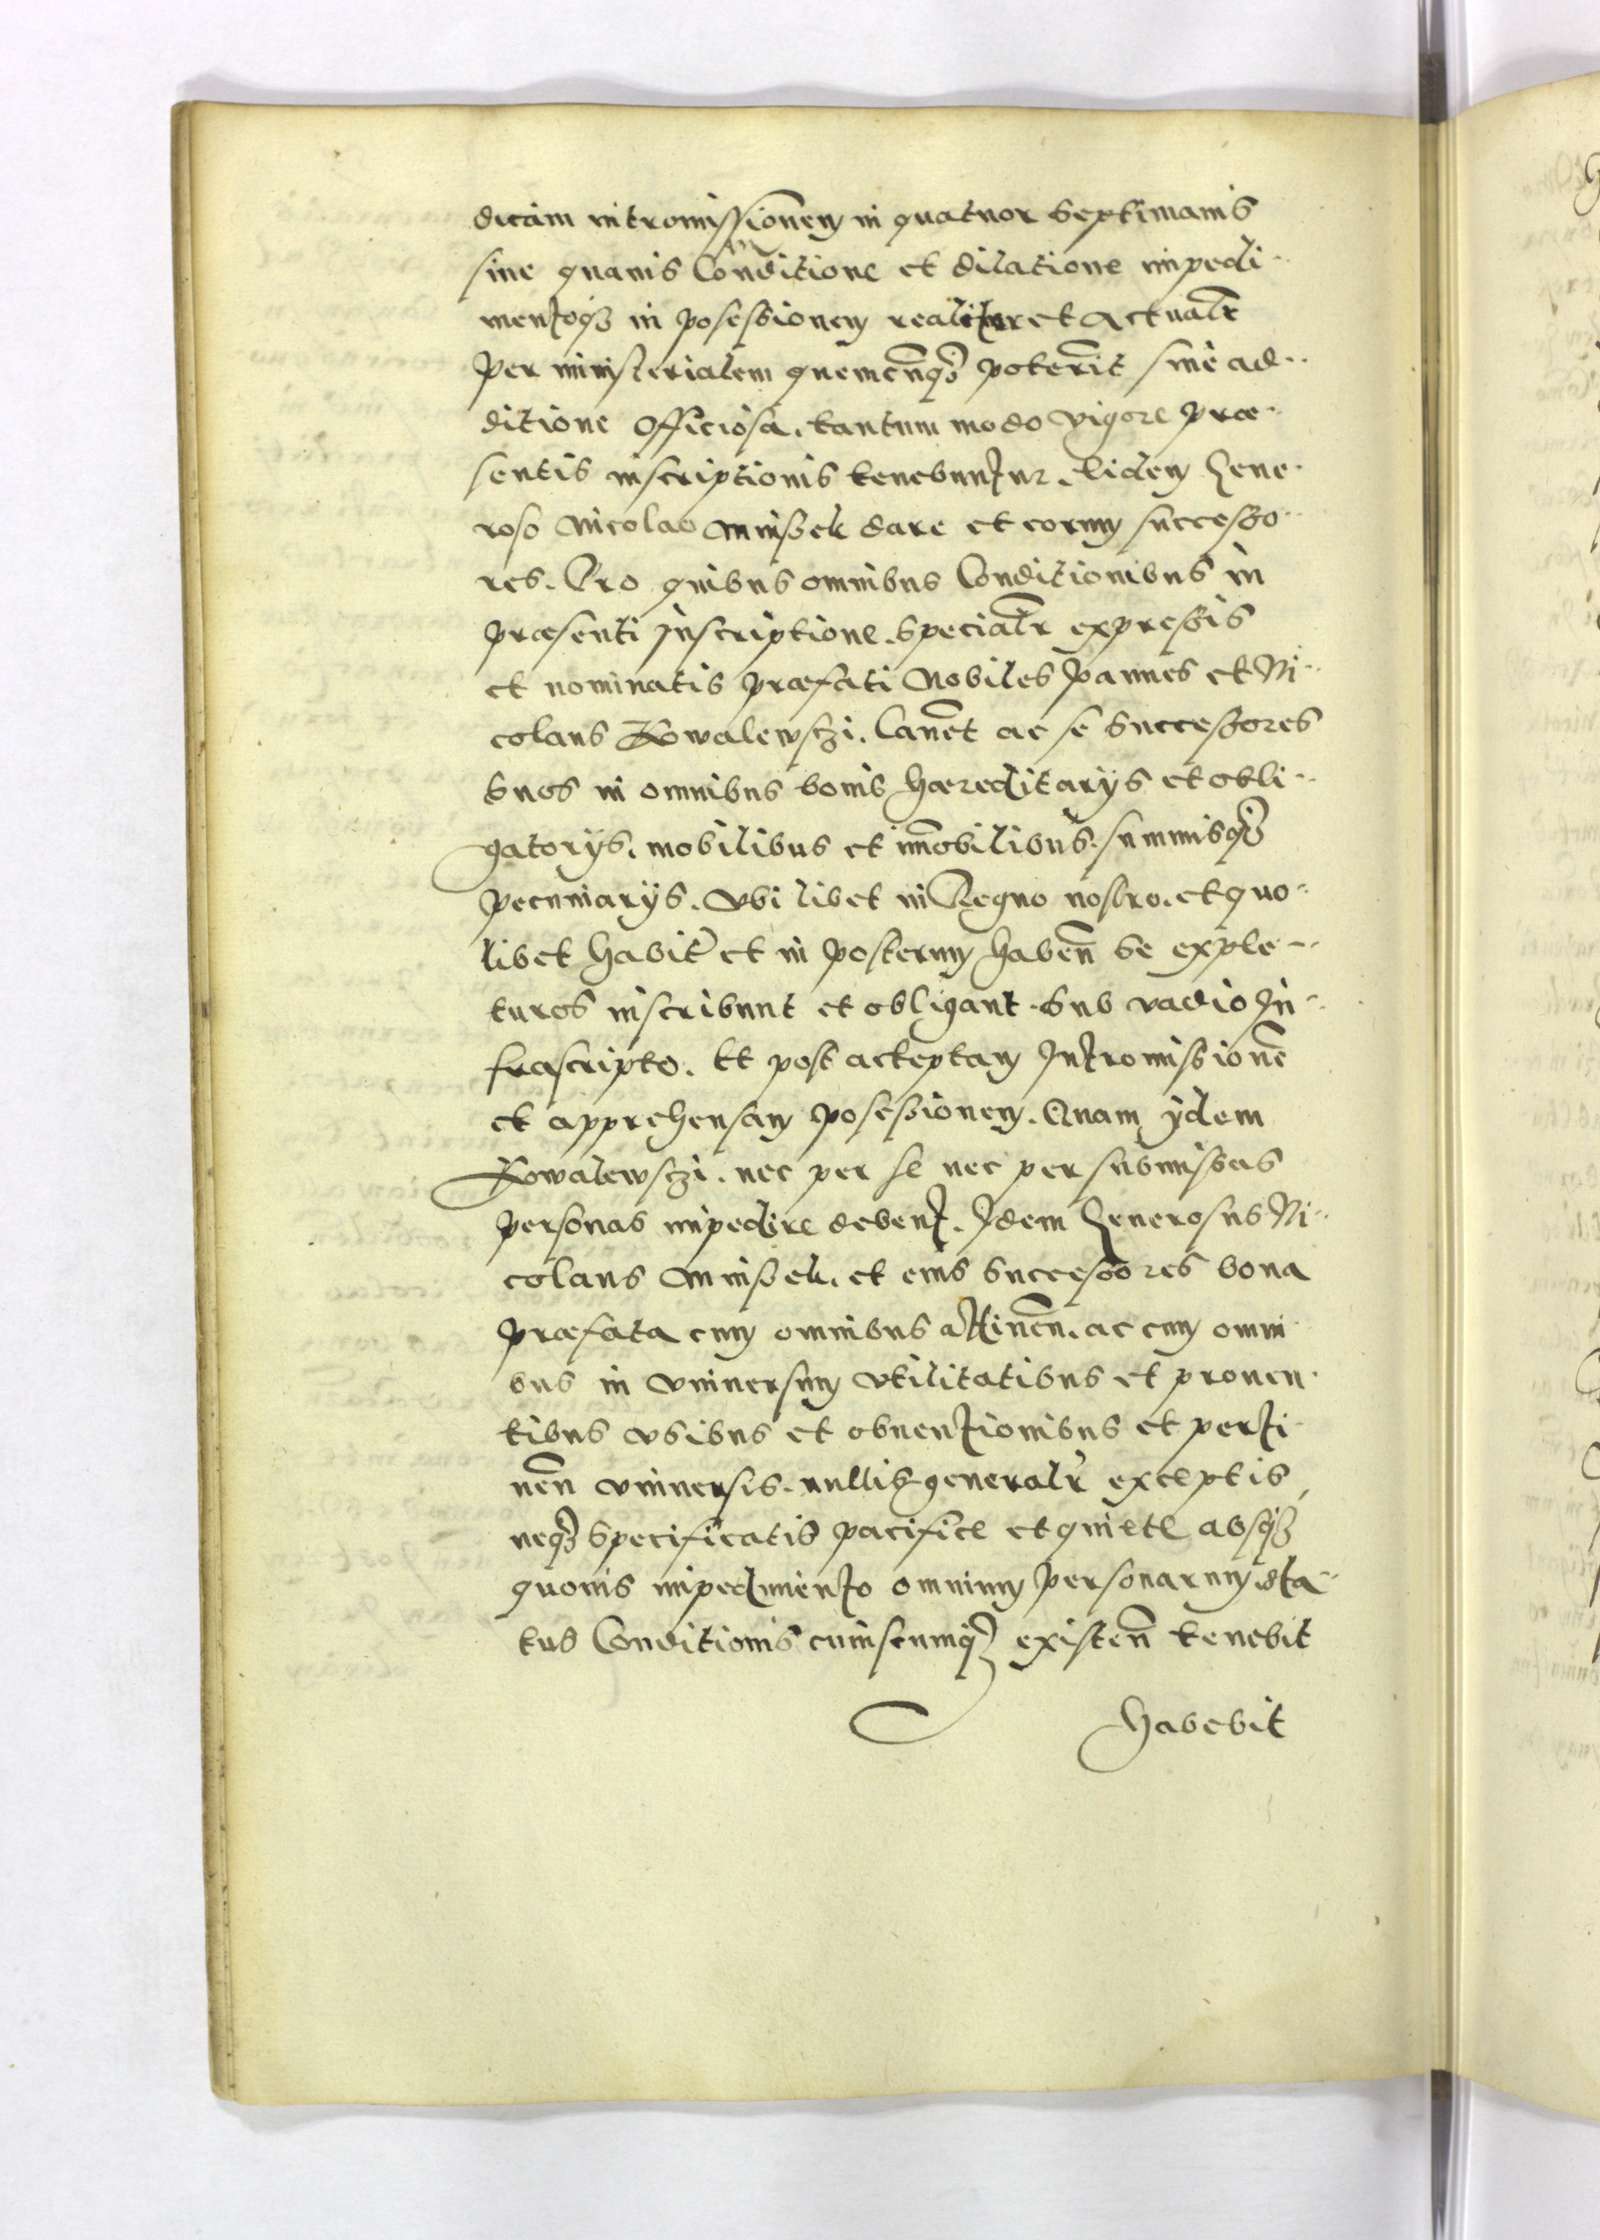 dicam intromissionem in quatuor Septimanis
sine quauis Conditione et dilatione impedi-
mentoq3 in posessionem realiter et actualr
per ministerialem quemcunq3 poterit sine ad-
ditione officiosa. tantum modo vigore præ-
sentis inscriptionis tenebuntur. Iidem Gene-
roso Nicolao Mnißek dare et eorum succeßo-
res. Pro quibus omnibus Conditionibus in
præsenti Inscriptione. Specialr expreßis
et nominatis præfati Nobiles Joannes et Ni-
colaus Kowalewsczi. Cauent ac se Succeßores
Suos in omnibus bonis hæreditarijs et obli-
gatorijs. mobilibus et immobilibus. summisq3
pecuniarijs. Vbi libet in Regno nostro. et quo-
libet habit et in posterum haben se exple-
turos inscribunt et obligant. Sub vadio In-
frascripto. Et post acceptam Intromissionem
et apprehensam poseßionem. Quam ijdem
Kowalewsczi. nec per se nec per submißas
personas impedire debent. Idem Generosus Ni-
colaus Mnißek. et eius Succeßores bona
præfata cum omnibus attinen. ac cum omni
bus in vniuersum vtilitatibus et prouen-
tibus vsibus et obuentionibus et perti-
nen vniuersis. nullis generalr exceptis
neq3 specificatis pacifice et quiete absq3
quouis impedimento omnium personarum sta-
tus Conditionis cuiuscumq3 existen tenebit
habebit